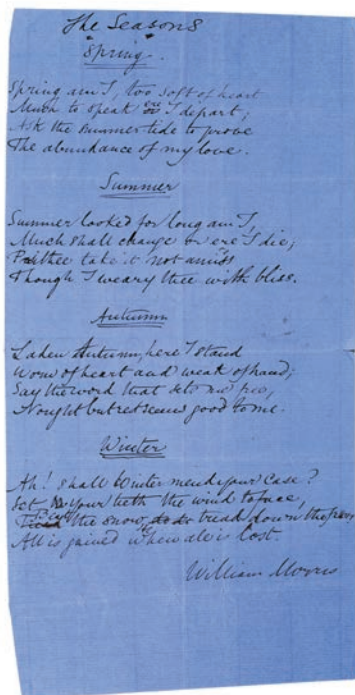 The Seasons
"Spring".
Spring am I, too soft of heart
Much to speak ere I depart;
Ask the summer tide to prove
The abundance of my love.
Summer
Summer looked for long am I,
Much shall change or ere I die;
Prithee take it not amiss
Though I weary thee with bliss.
Autumn
Laden Autumn here I stand
Worn of heart and weak of hand;
Say the word that sets me free,
Nought but rest seems good to me.
Winter
Ah! shall Winter mend your case?
Set your teeth the wind to face,
Beat the snow, tread down the
All is gained when all is lost.
William Morris